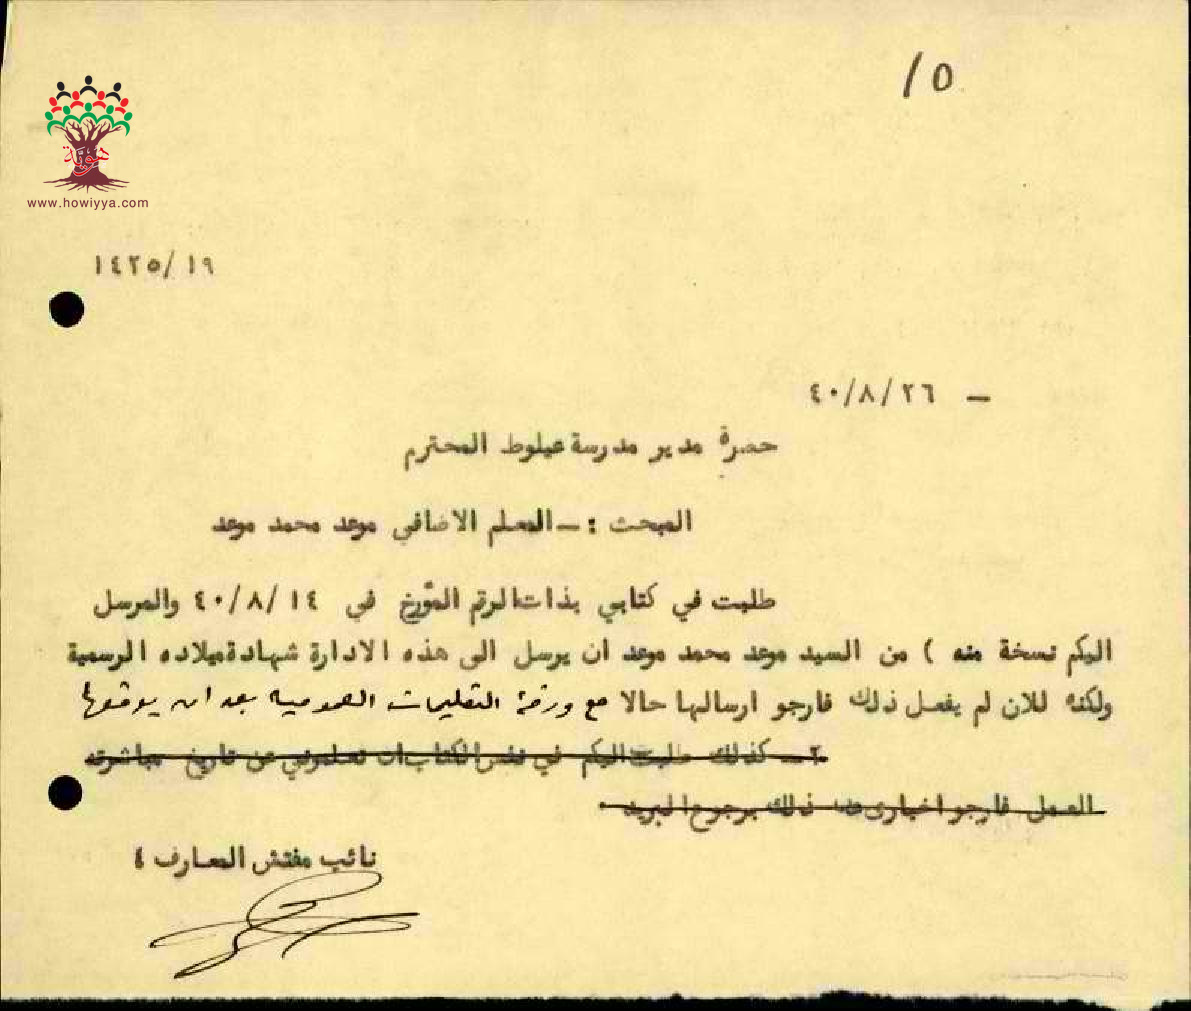 ١٥
هوية
www.howiyya.com
١٤٢٥/١٩
٤٠/٨/٢٦ –
حضرة مدير مدرسة عيلوط المحترم
المبحث :– المعلم الاضافي موعد محمد موعد
طلبت في كتابي بذات الرقم المؤرخ في ٤٠/٨/١٤ والمرسل
اليكم نسخة منه ) من السيد موعد محمد موعد ان يرسل الى هذه الادارة شهادة ميلاده الرسمية
ولكنه للان لم يفعل ذلك فارجو ارسالها حالا مع ورقة التعليمات العمومية بعد ان يوقعها
٢– كذلك طلبت اليكم في نفس الكتاب ان تعلموني عن تاريخ مباشرته
العمل فارجو اخباري عن ذلك برجوع البريد
نائب مفتش المعارف ٤